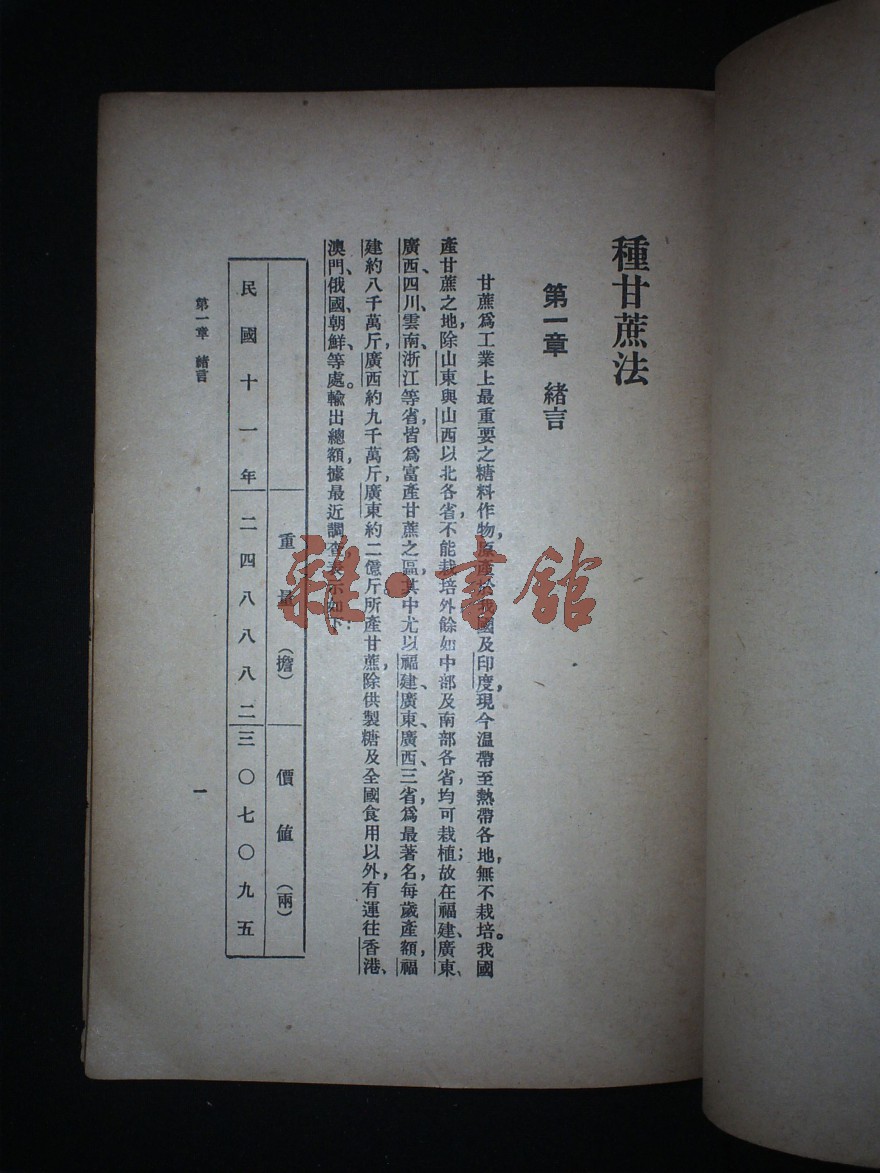 種甘蔗法
第一章 緒言
甘蔗爲工業上最重要之糖料作物,原產於我國及印度,現今温帶至熱帶各地,無不栽培。我國
產甘蔗之地,除山東與山西以北各省,不能栽培外,餘如中部及南部各省,均可栽植;故在福建、廣東、
廣西、四川、雲南、浙江等省,皆爲富產甘蔗之區。其中尤以福建、廣東、廣西三省,爲最著名,每歲產額,福
建約八千萬斤,廣西約九千萬斤,廣東約二億斤。所產甘蔗,除供製糖及全國食用以外,有運往香港、
澳門、俄國、朝鮮等處。輸出總額,據最近調查,表示如下:
重量(擔) 價值(兩)
民國十一年 二四八八八二 三〇七〇九五
第一章 緒言
一
雜·書館